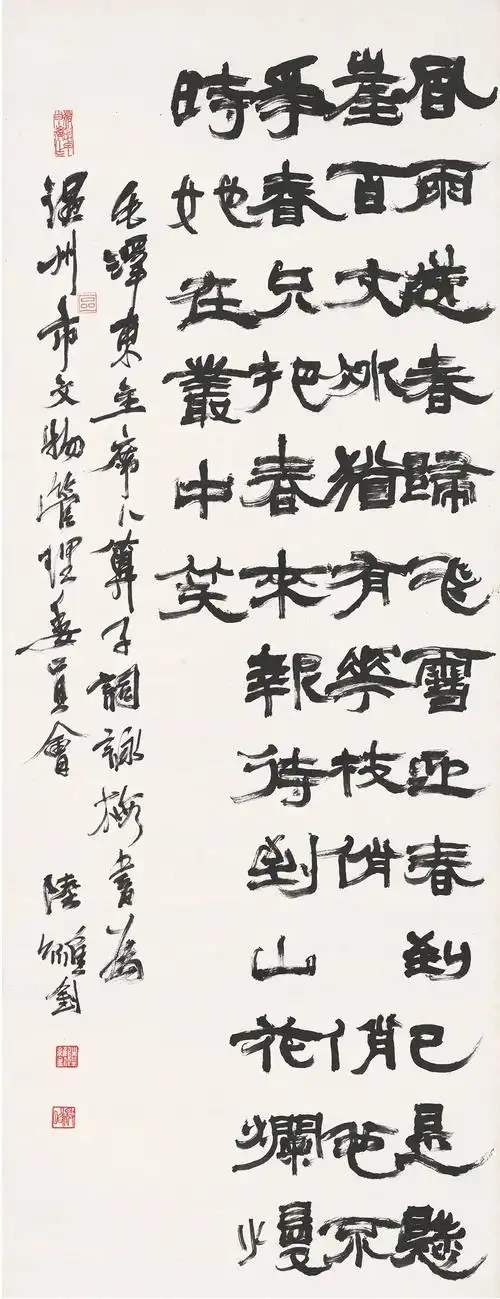 風雨送春歸飛雪迎春到已是懸
崖百丈冰猶有華枝俏俏也不
爭春只把春來報待到山花爛熳
時她在叢中笑
毛澤東主席卜算子詞詠梅書為
溫州市文物管理委員會 陸維釗